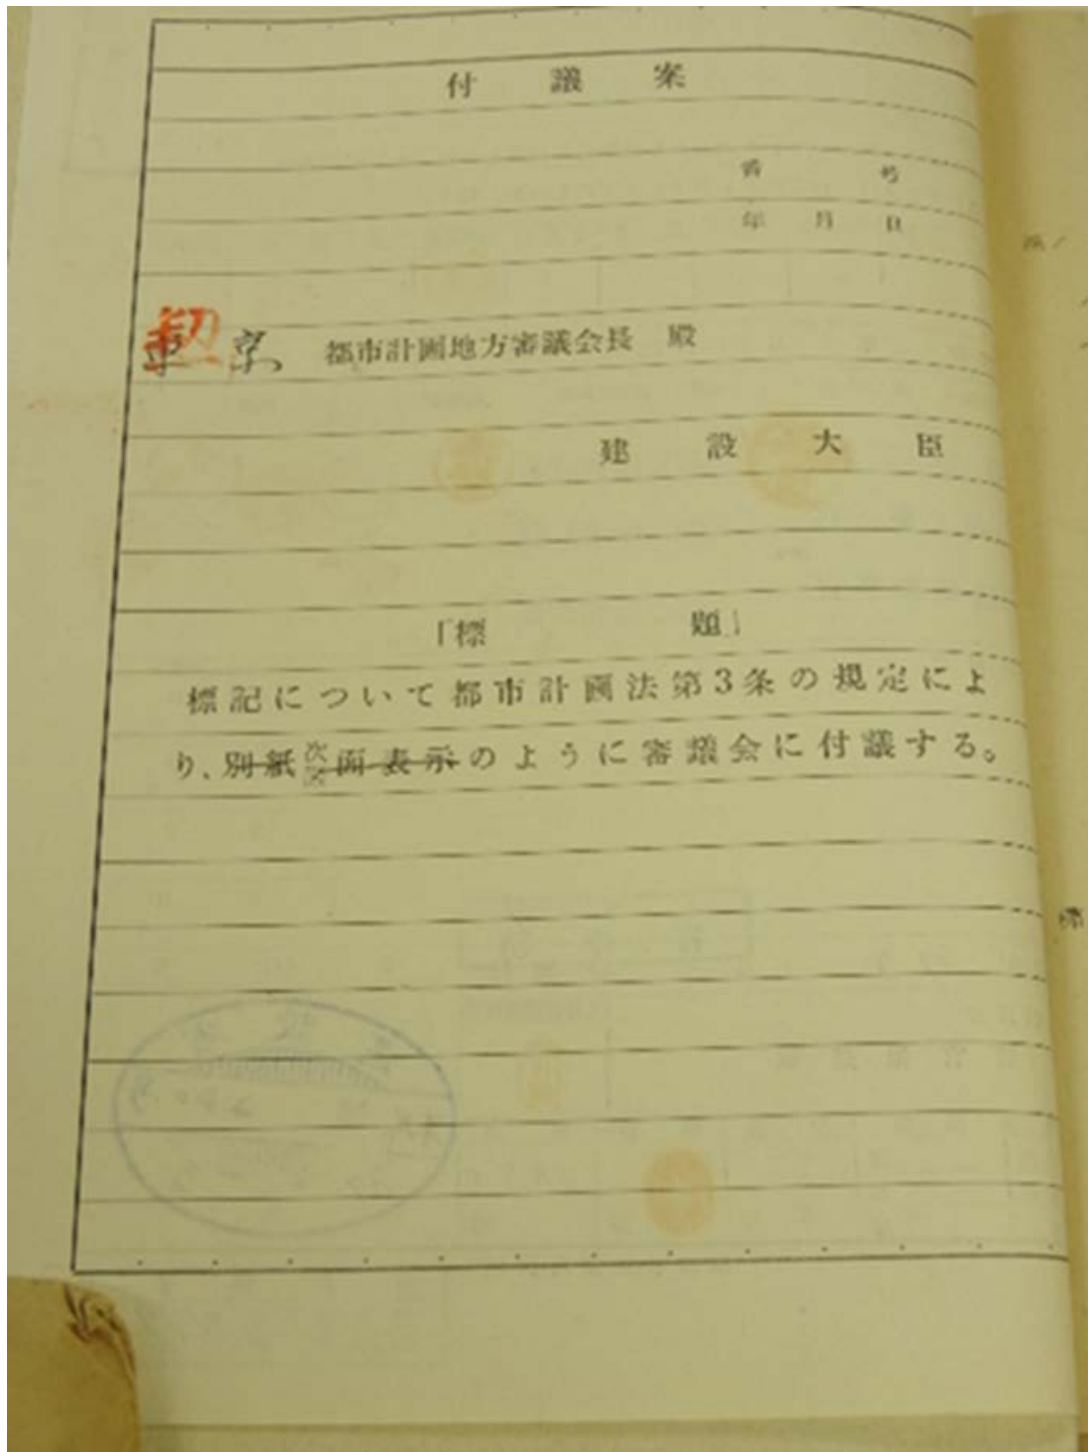 付議案
番号
年月日
契
東京 都市計画地方審議会長 殿
建設大臣
「標題」
標記について都市計画法第3条の規定によ
り、別紙図面表示のように審議会に付議する。